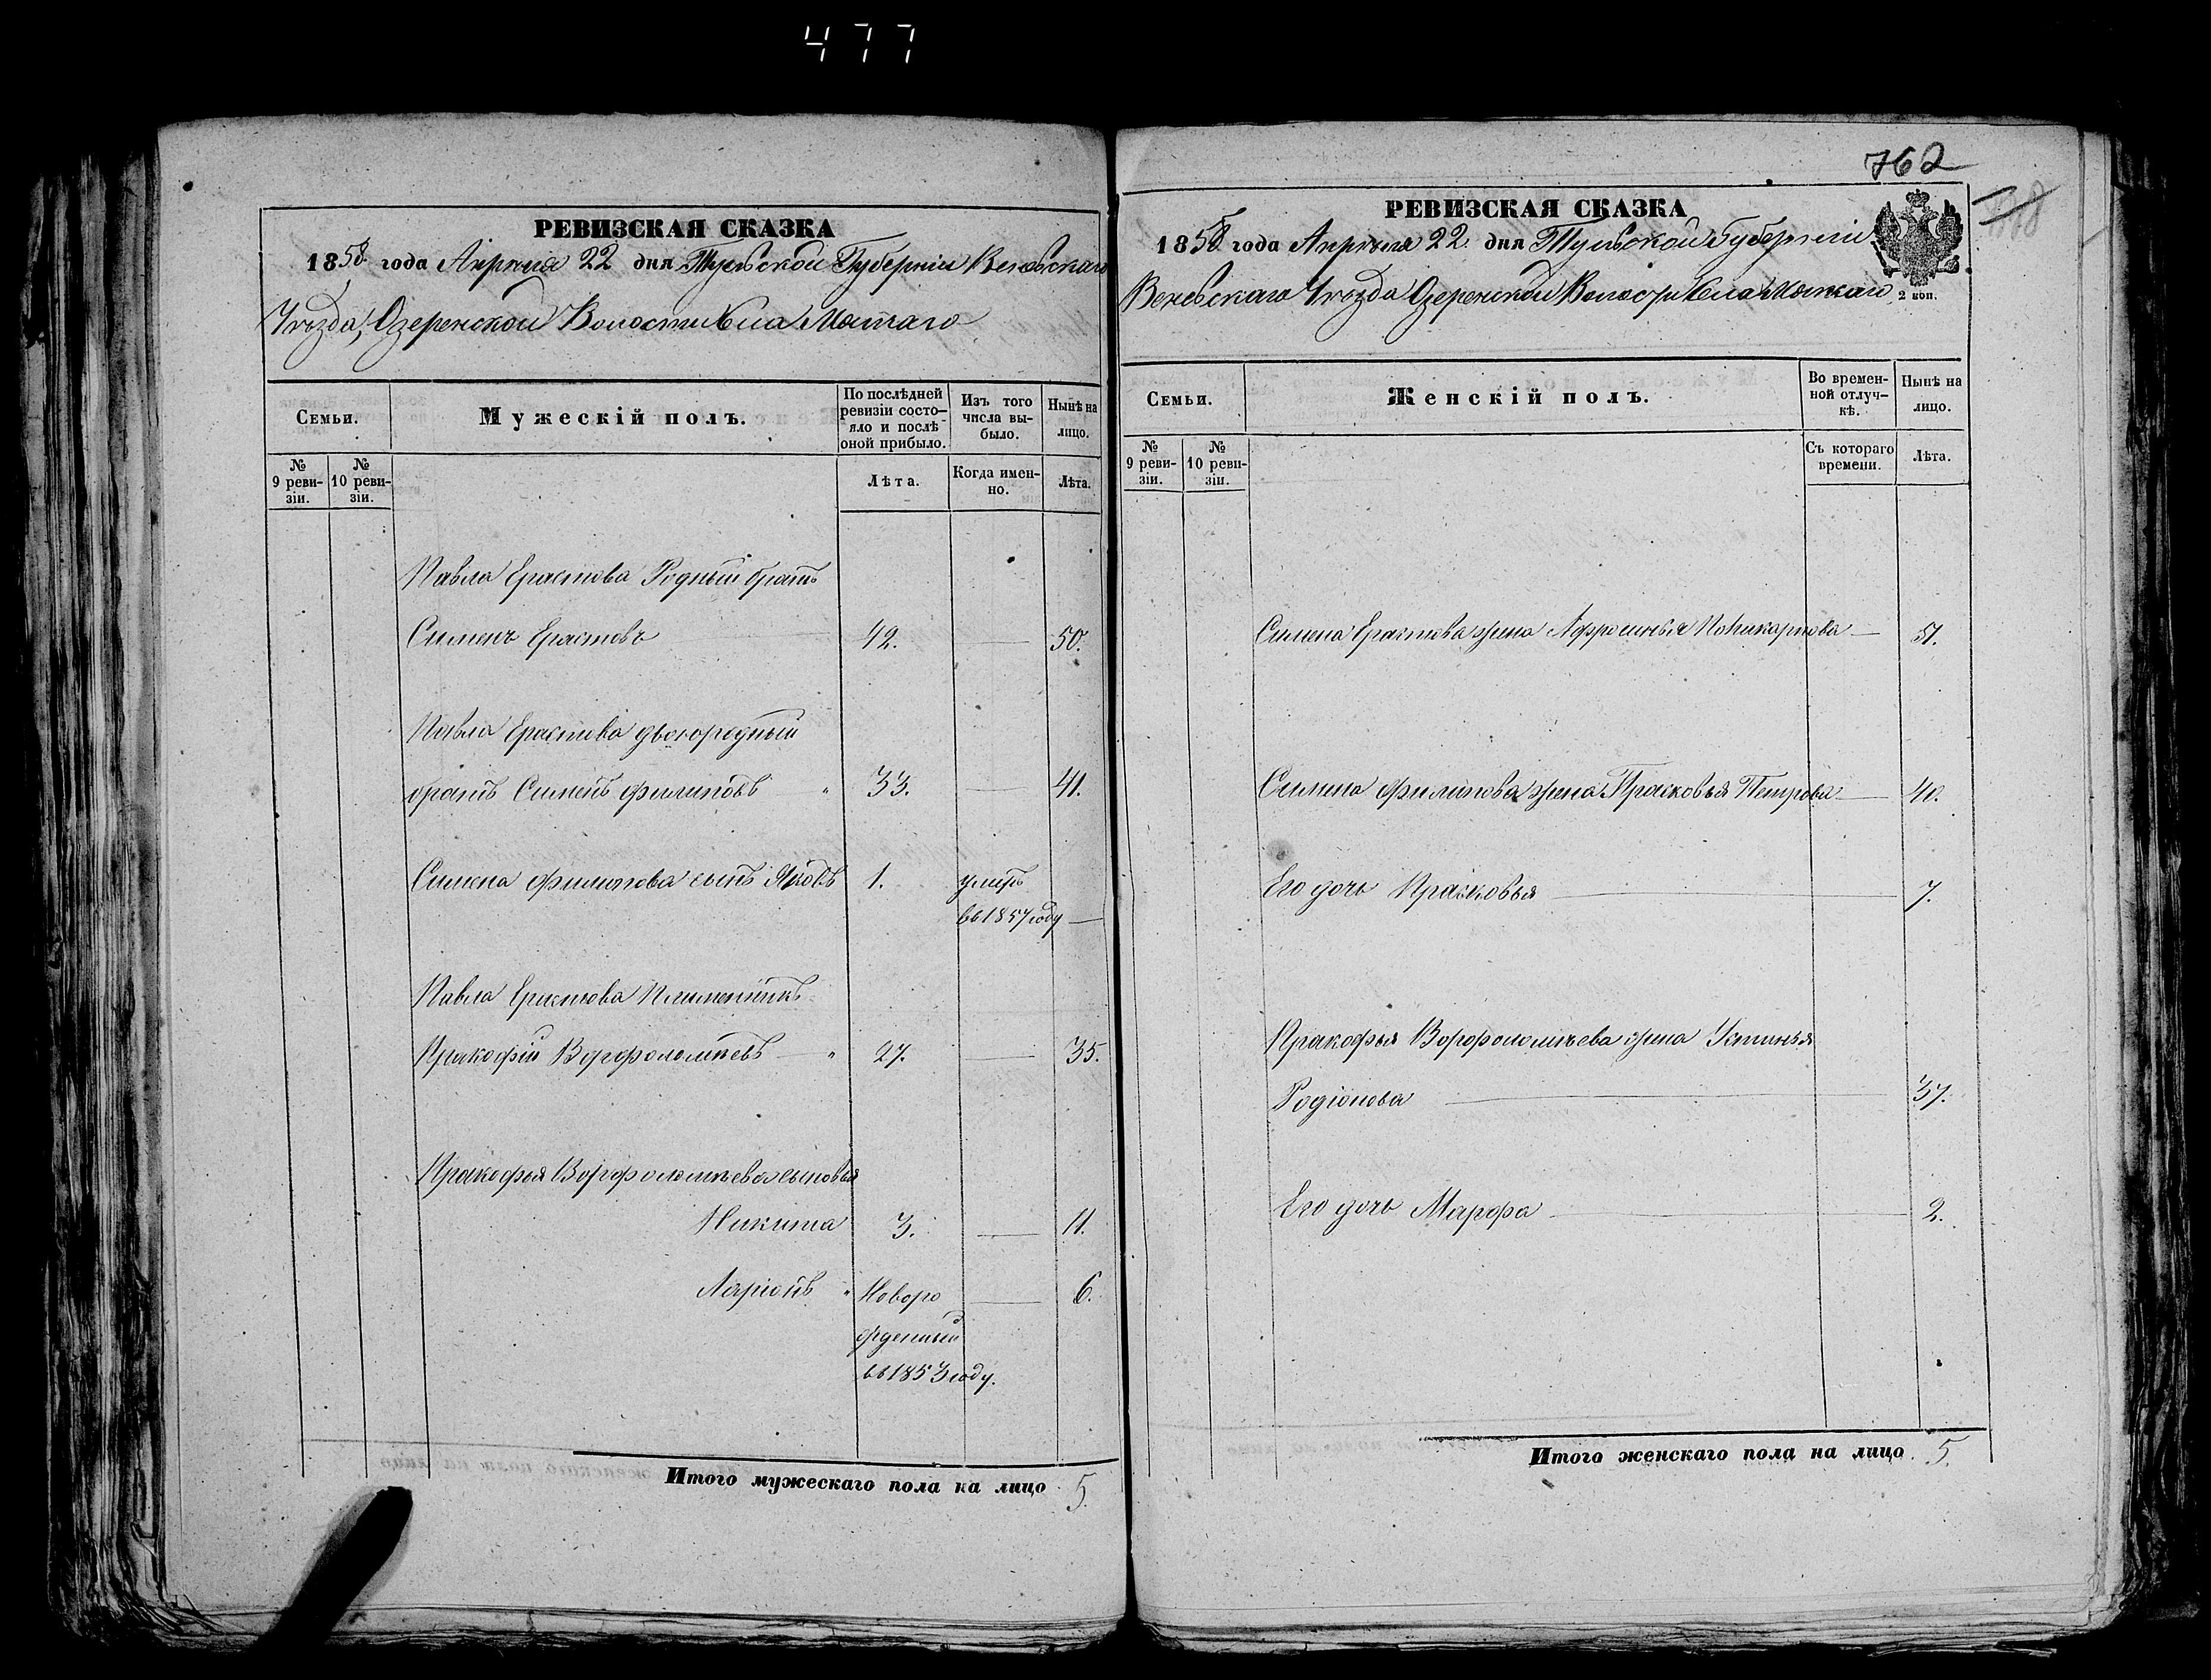 477
РЕВИЗСКАЯ СКАЗКА
1858 года Апрѣля 22 дня Тульской Губерніи Веневскаго
Уѣзда, Озеренской Волости Села Мятаго
Семьи.
Мужескій полъ.
По послѣдней
ревизіи состо-
яло и послѣ
оной прибыло.
Изъ того
числа вы-
было.
Нынѣ на
лицо.
№
9 реви-
зіи.
№
10 реви-
зіи.
Лѣта.
Когда имен-
но.
Лѣта.
Павла Ерастова Родный братъ
Сименъ Ерастовъ 42. 50.
Павла Ерастова двоюродный
братъ Сименъ Филиповъ 33. 41.
Симена Филипова сынъ Яковъ 1. умеръ
въ 1857 году
Павла Ерастова Племенникъ
Пракофій Ворфоломѣевъ 27. 35.
Пракофья Ворфоломѣева сыновья
Никита 3. 11.
Ларіонъ Новоро 6.
жденный
въ 1853 году.
Итого мужескаго пола на лицо 5.
762
РЕВИЗСКАЯ СКАЗКА
1858 года Апрѣля 22 дня Тульской Губерніи
Веневскаго Уѣзда Озеренской Волости Села
2 коп.
Семьи.
Женскій полъ.
Во времен-
ной отлуч-
кѣ.
Нынѣ на
лицо.
№
9 реви-
зіи.
№
10 реви-
зіи.
Съ котораго
времени.
Лѣта.
Симена Ерастова жена Афросинья Поликарпова 51.
Симена Филипова жена Прасковья Петрова 40.
Его дочь Прасковья 7.
Пракофья Ворфоломѣева жена Устинья
Родіонова 37.
Его дочь Марфа 2.
Итого женскаго пола на лицо 5.